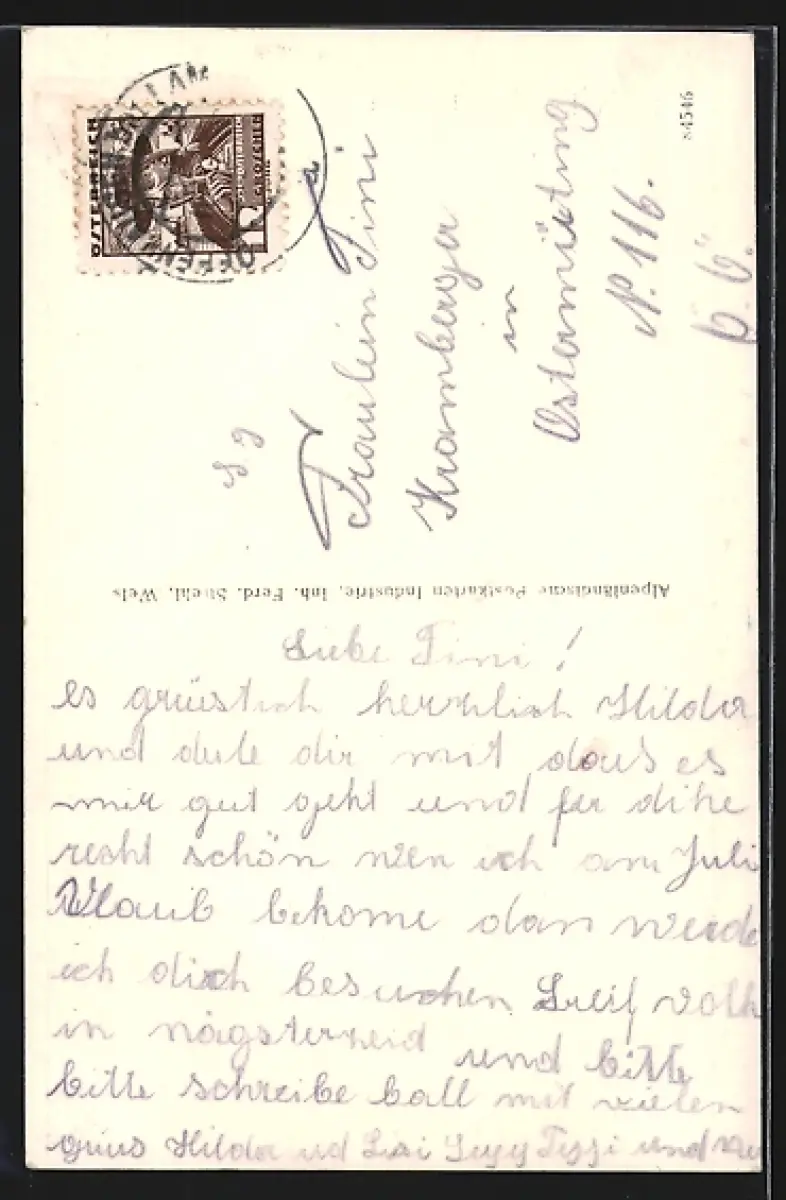 ÖSTERREICH
S g
Fräulein Tini
Kramberger
in
Ostermiëting
N. 116.
O. Ö.
84546
Alpenländische Postkarten Industrie, Inh. Ferd. Stiehl, Wels
Liebe Tini!
es grüst ich herzlich Hilda
und dule dir mit das es
mir gut geht und
recht schön wen ich am Juli
Ulaub bekome dan werde
ich dich besuchen
in nägster
und bitte
bitte schreibe ball mit vielen
grüs Hilda ud Lisi und